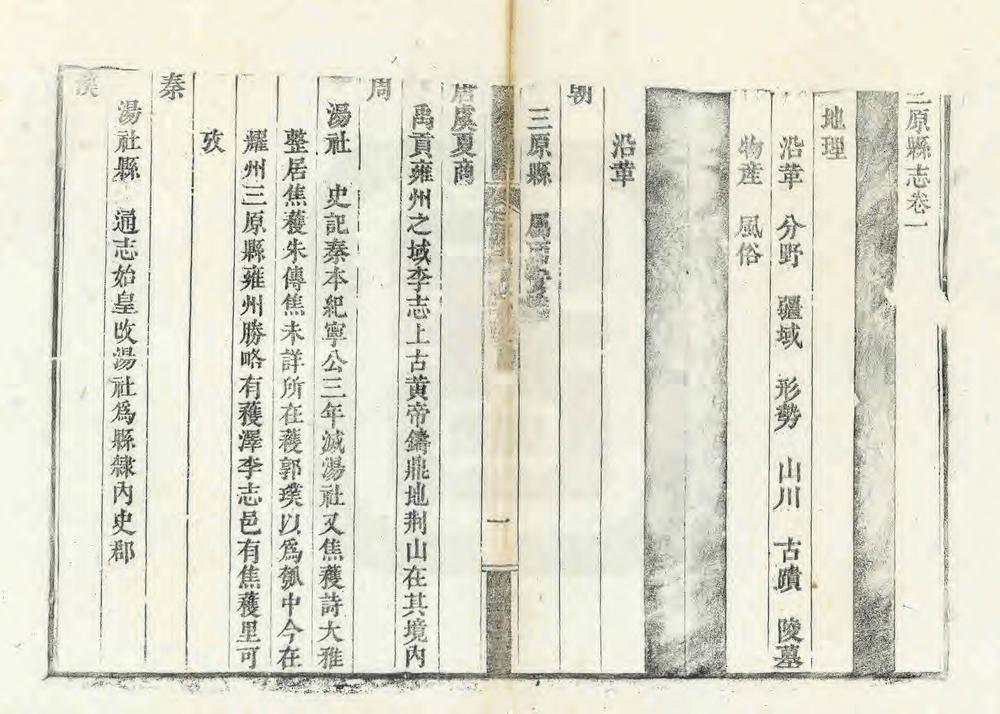 三原縣志卷一
地理
沿革 分野 疆域 形勢 山川 古蹟 陵墓
物産 風俗
沿革
朝
三原縣 屬西安
一
唐虞夏商
禹貢雍州之域李志上古黄帝鑄鼎地荆山在其境内
周
湯社 史記秦本紀寧公三年滅湯社又焦穫詩大雅
整居焦穫朱傳焦未詳所在穫郭璞以爲瓠中今在
耀州三原縣雍州勝略有穫澤李志邑有焦穫里可
攷
秦
湯社縣 通志始皇改湯社爲縣隸内史郡
漢